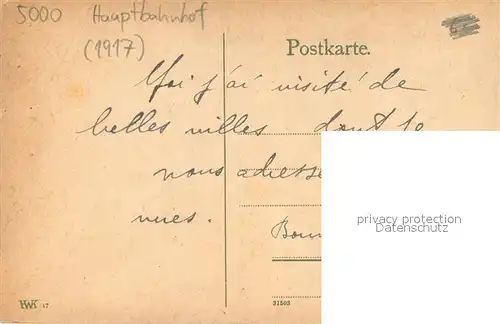 5000 Hauptbahnhof
(1917)
Postkarte.
j'ai visité de
belles villes dont je
vous adresse
vues.
privacy protection
Datenschutz
HWK 17
31503